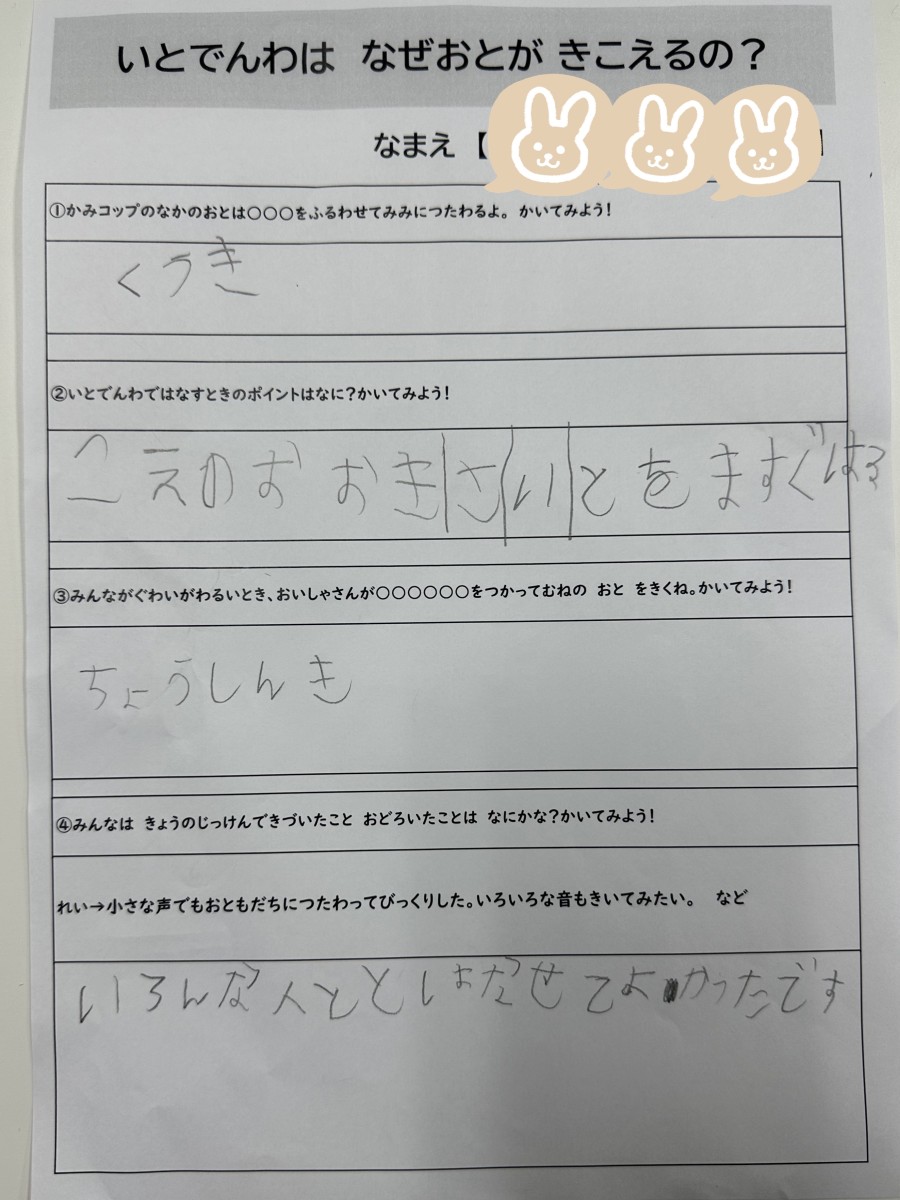 いとでんわは なぜおとが きこえるの？
なまえ【 】
①かみコップのなかのおとは〇〇〇をふるわせてみみにつたわるよ。 かいてみよう！
くうき
②いとでんわではなすときのポイントはなに？かいてみよう！
こえのおおきさいとをますぐはる
③みんながぐわいがわるいとき、おいしゃさんが〇〇〇〇〇〇をつかってむねの おと をきくね。かいてみよう！
ちょうしんき
④みんなは きょうのじっけんできづいたこと おどろいたことは なにかな？かいてみよう！
れい→小さな声でもおともだちにつたわってびっくりした。いろいろな音もきいてみたい。 など
いろんな人ととはなせてよかったです